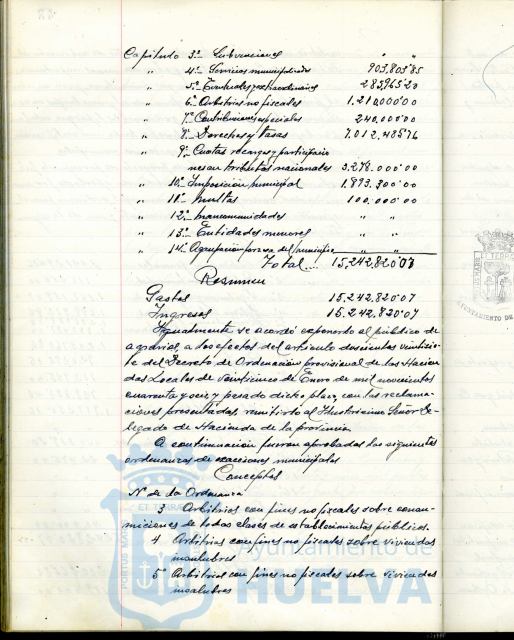 Capítulo 3º- Subvenciones " "
" 4º- Servicios municipalizados 903,803'85
" 5º- Eventuales y extraordinarios 283,965'20
" 6º- Arbitrios no fiscales 1.210,000'00
" 7º- Contribuciones especiales 240,000'00
" 8º- Derechos y tasas 7.012,485'76
" 9º- Cuotas recargos y participacio
nes en tributos nacionales 3.278.000'00
" 10º- Imposición municipal 1.893.300'00
" 11º- Multas 100.000'00
" 12º- Mancomunidades " "
" 13º- Entidades menores " "
" 14º- Agrupación forzosa del municipio " "
Total... 15,242,820'07
Resumen
Gastos 15,242,820'07
Ingresos 15.242,820'07
Igualmente se acordó exponerlo al público de
a efectos del artículo doscientos veintisie
te del Decreto de Ordenación provisional de las Hacien
das Locales de veinticinco de Enero de mil novecientos
cuarenta y seis y pasado dicho plazo, con las reclama-
ciones presentadas, remitirlo al Ilustrísimo Señor De-
legado de Hacienda de la provincia
A continuación fueron aprobadas las siguientes
ordenanzas de exacciones municipales
Conceptos
Nº de la Ordenanza
3 Arbitrios con fines no fiscales sobre consu-
miciones de todas clases de establecimientos públicos.
4 Arbitrios con fines no fiscales sobre viviendas
insalubres
5º Arbitrios con fines no fiscales sobre viviendas
insalubres
PORTUS MARIS ET TERRAE
Ayuntamiento de
HUELVA
AYUNTAMIENTO DE